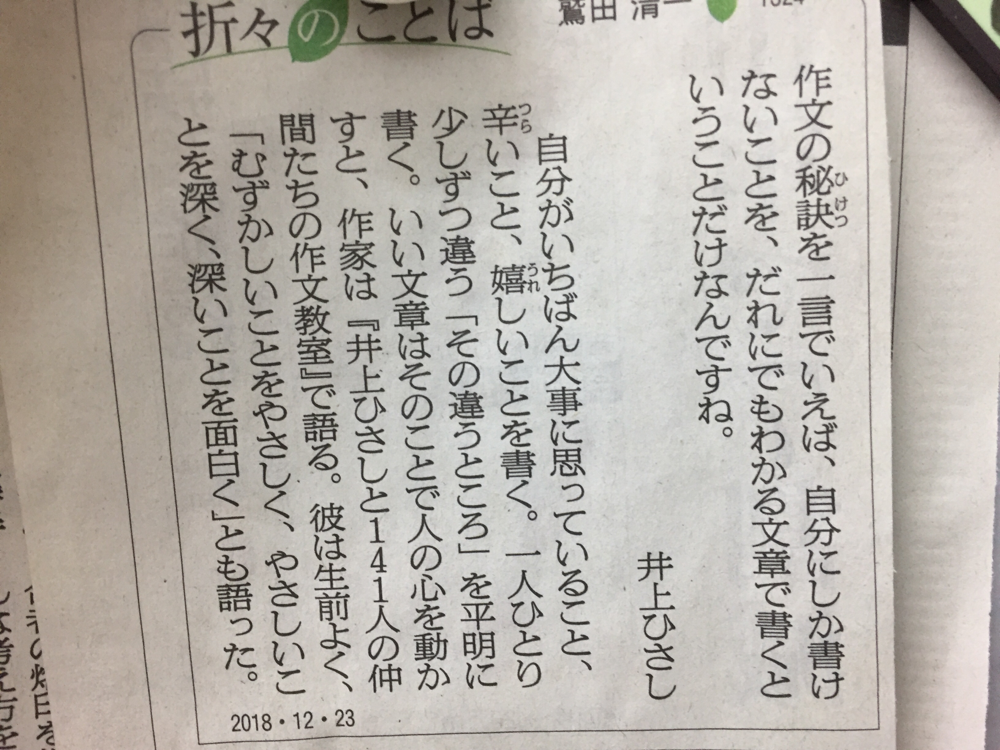 折々のことば
鷲田 清一
1324
作文の秘訣を一言でいえば、自分にしか書け
ないことを、だれにでもわかる文章で書くと
いうことだけなんですね。
井上ひさし
自分がいちばん大事に思っていること、
辛いこと、嬉しいことを書く。一人ひとり
少しずつ違う「その違うところ」を平明に
書く。いい文章はそのことで人の心を動か
すと、作家は『井上ひさしと141人の仲
間たちの作文教室』で語る。彼は生前よく、
「むずかしいことをやさしく、やさしいこ
とを深く、深いことを面白く」とも語った。
2018・12・23